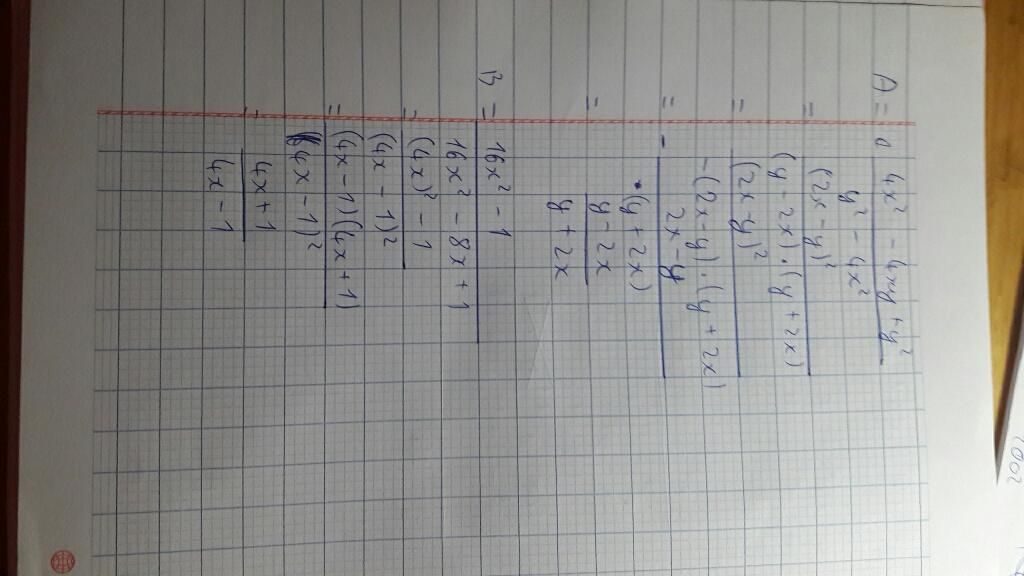 A = 4x² - 4xy + y²
y² - 4x²
= (2x - y)²
(y - 2x) · (y + 2x)
= (2x - y)²
- (2x - y) · (y + 2x)
= - 2x - y
(y + 2x)
= y - 2x
y + 2x
B = 16x² - 1
16x² - 8x + 1
= (4x)² - 1
(4x - 1)²
= (4x - 1)(4x + 1)
(4x - 1)²
= 4x + 1
4x - 1